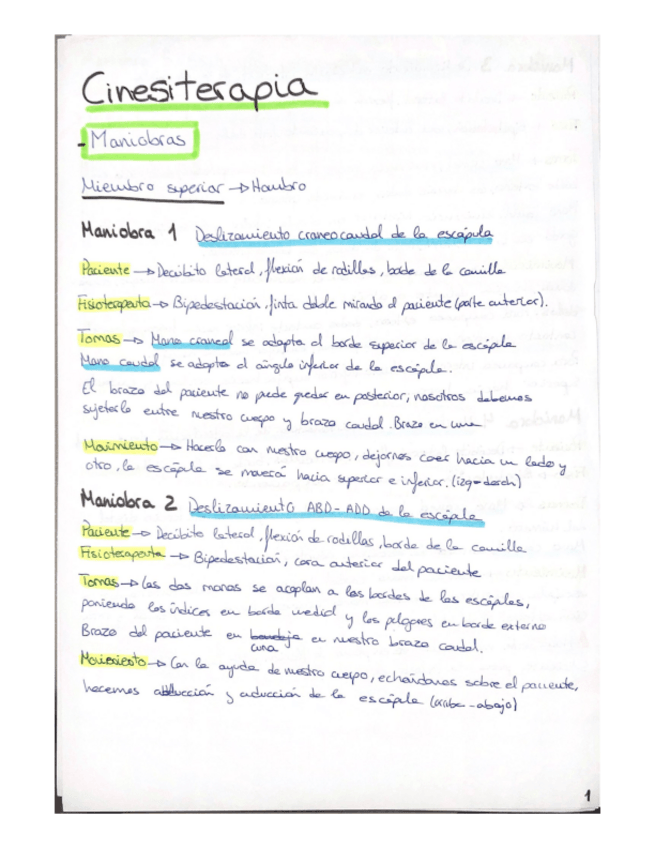 Cinesiterapia
- Maniobras
Miembro superior → Hombro
Maniobra 1 Deslizamiento craneocaudal de la escápula
Paciente → Decúbito lateral, flexión de rodillas, borde de la camilla
Fisioterapeuta → Bipedestación, finta doble mirando al paciente (parte anterior).
Tomas → Mano craneal se adapta al borde superior de la escápula
Mano caudal se adapta al ángulo inferior de la escápula.
El brazo del paciente no puede quedar en posterior, nosotros debemos
sujetarlo entre nuestro cuerpo y brazo caudal. Brazo en cuna
Movimiento → Hacerlo con nuestro cuerpo, dejarnos caer hacia un lado y
otro, la escápula se moverá hacia superior e inferior. (izq-derch)
Maniobra 2 Deslizamiento ABD-ADD de la escápula
Paciente → Decúbito lateral, flexión de rodillas, borde de la camilla
Fisioterapeuta → Bipedestación, cara anterior del paciente
Tomas → Las dos manos se acoplan a los bordes de las escápulas,
poniendo los índices en borde medial y los pulgares en borde externo
Brazo del paciente en bandeja en nuestro brazo caudal.
cuna
Movimiento → Con la ayuda de nuestro cuerpo, echándonos sobre el paciente,
hacemos abducción y aducción de la escápula (arriba-abajo)
1